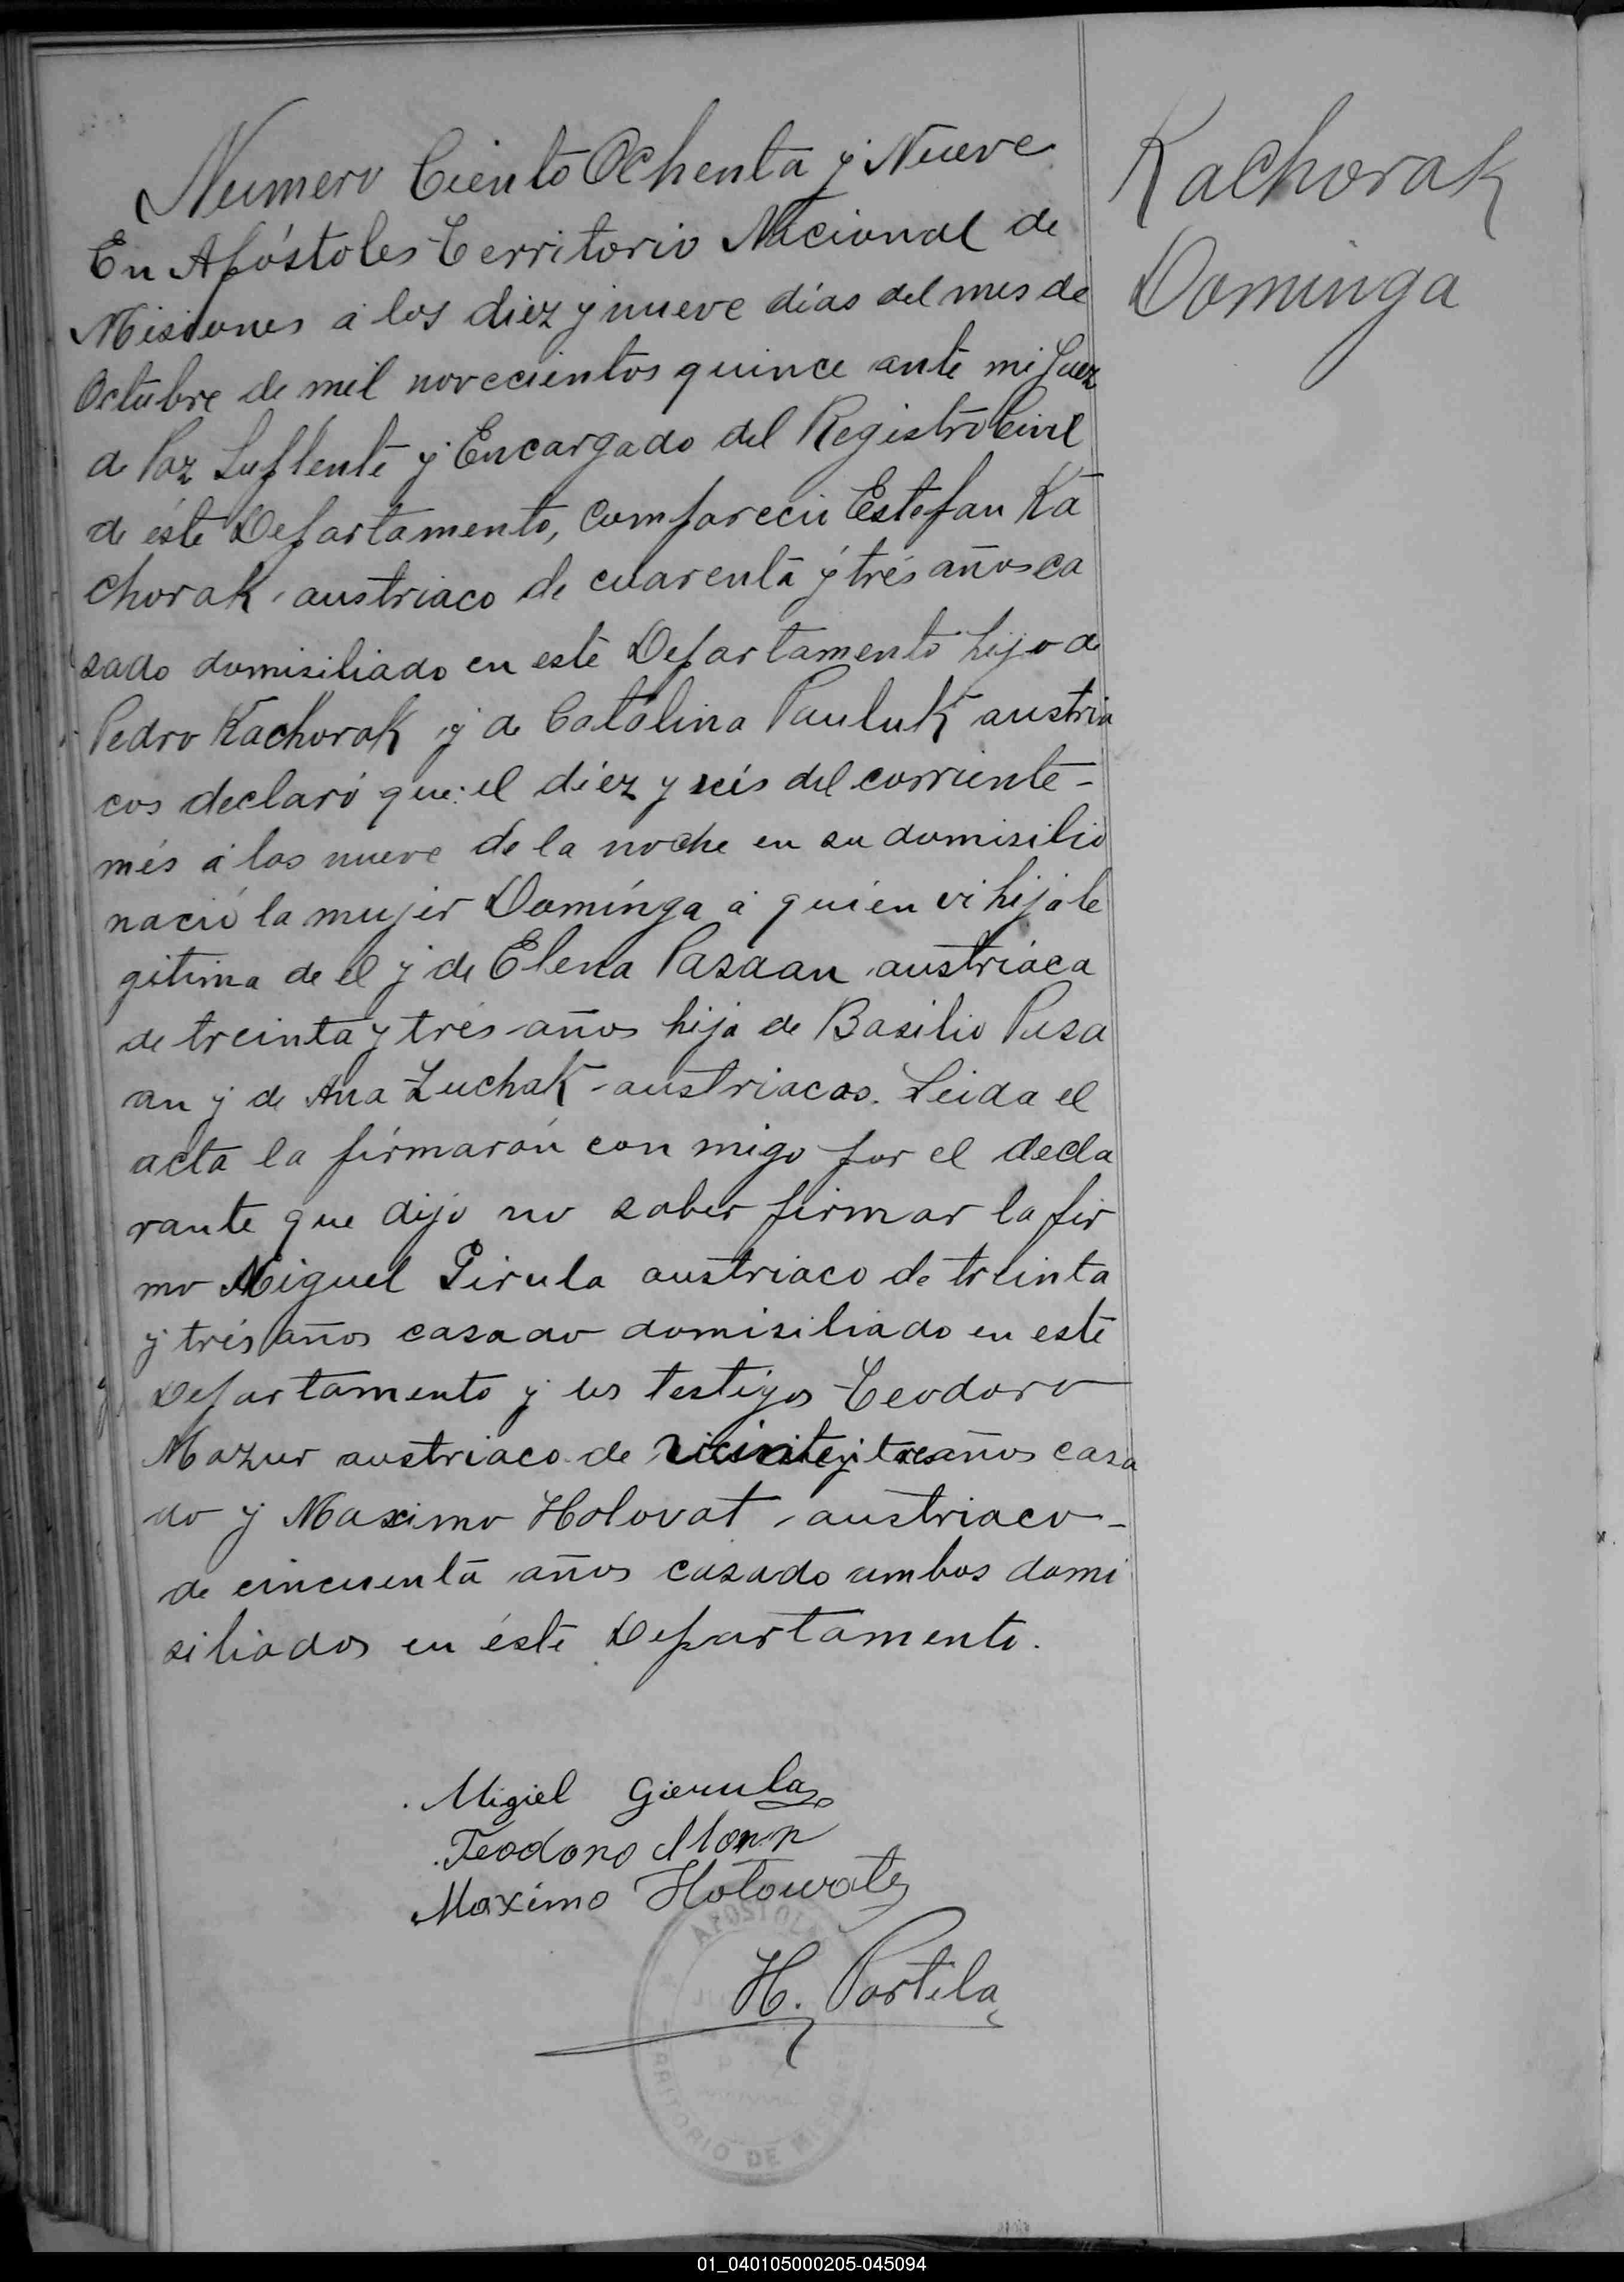 Numero Ciento Ochenta y Nueve
En Apóstoles Territorio Nacional de
Misiones á los diez y nueve días del mes de
Octubre de mil novecientos quince ante mi Juez
de Paz Suplente y Encargado del Registro Civil
de éste Departamento, compareció Estefan Ka
chorak austriaco de cuarenta y trés años ca
sado domisiliado en este Departamento hijo de
Pedro Kachorak y de Catalina Pauluk austria
cos declaró que: el diez y seis del corriente -
més á las nueve de la noche en su domisilio
nació la mujer Domínga á quién vi hija le
gitima de el y de Elena Pasaan austriáca
de treinta y trés años hija de Basilio Pasa
an y de Ana Luchak - austriacos. Leida el
acta la fírmarón con migo por el decla
rante que dijo no saber firmar lo fir
mo Miguel Girula austriaco de treinta
y trés años casado domisiliado en este
Departamento y los testigos Teodoro
Mazur austriaco de años casa
do y Maximo Holovat austriaco -
de cincuenta años casado ambos domi
siliados en éste Departamento.
Kachorak
Dominga
Migiel Gierula
Teodoro
Maximo Hotowate
H. Portela
APOSTOL
TERRITORIO DE MISIONES
01_040105000205-045094